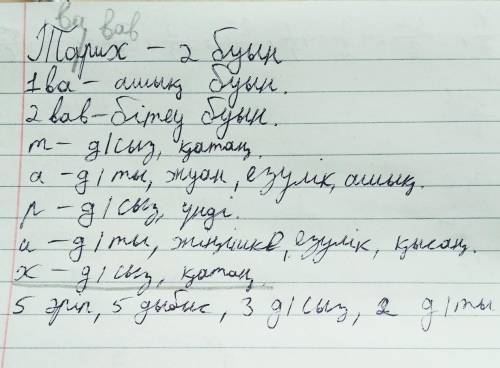 ва вав
Тарих – 2 буын
1 ва – ашық буын.
2 вав – бітеу буын.
т – д/сыз, қатаң.
а – д/ты, жуан, езулік, ашық.
р – д/сыз, үнді.
и – д/ты, жіңішке, езулік, қысаң.
х – д/сыз, қатаң.
5 әріп, 5 дыбыс, 3 д/сыз, 2 д/ты